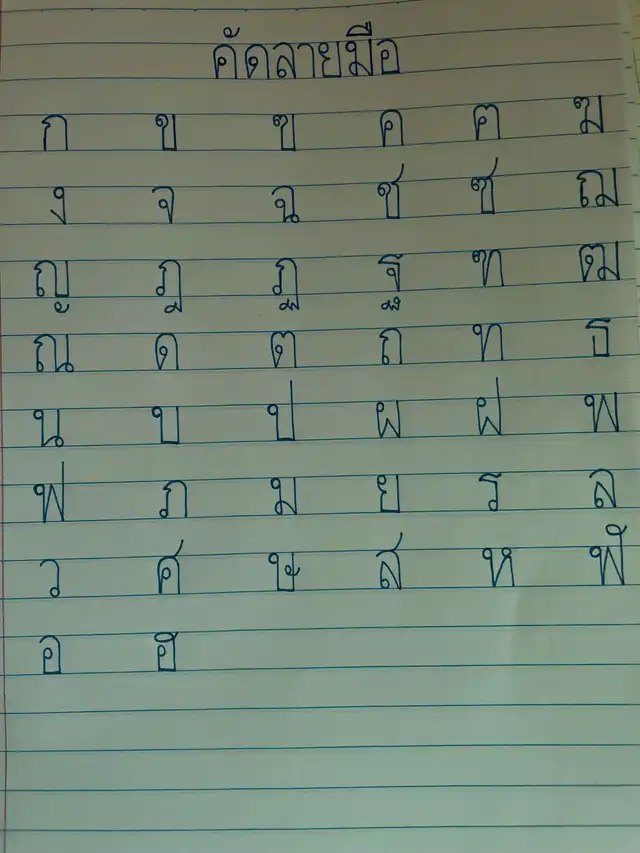 คัดลายมือ
ก ข ฃ ค ฅ ฆ
ง จ ฉ ช ซ ฌ
ญ ฎ ฏ ฐ ฑ ฒ
ณ ด ต ถ ท ธ
น บ ป ผ ฝ พ
ฟ ภ ม ย ร ล
ว ศ ษ ส ห ฬ
อ ฮ